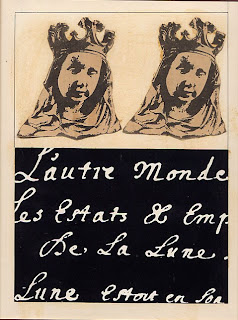 L'autre Monde
les Estats & Emp
De La Lune.
Lune Estoit en son